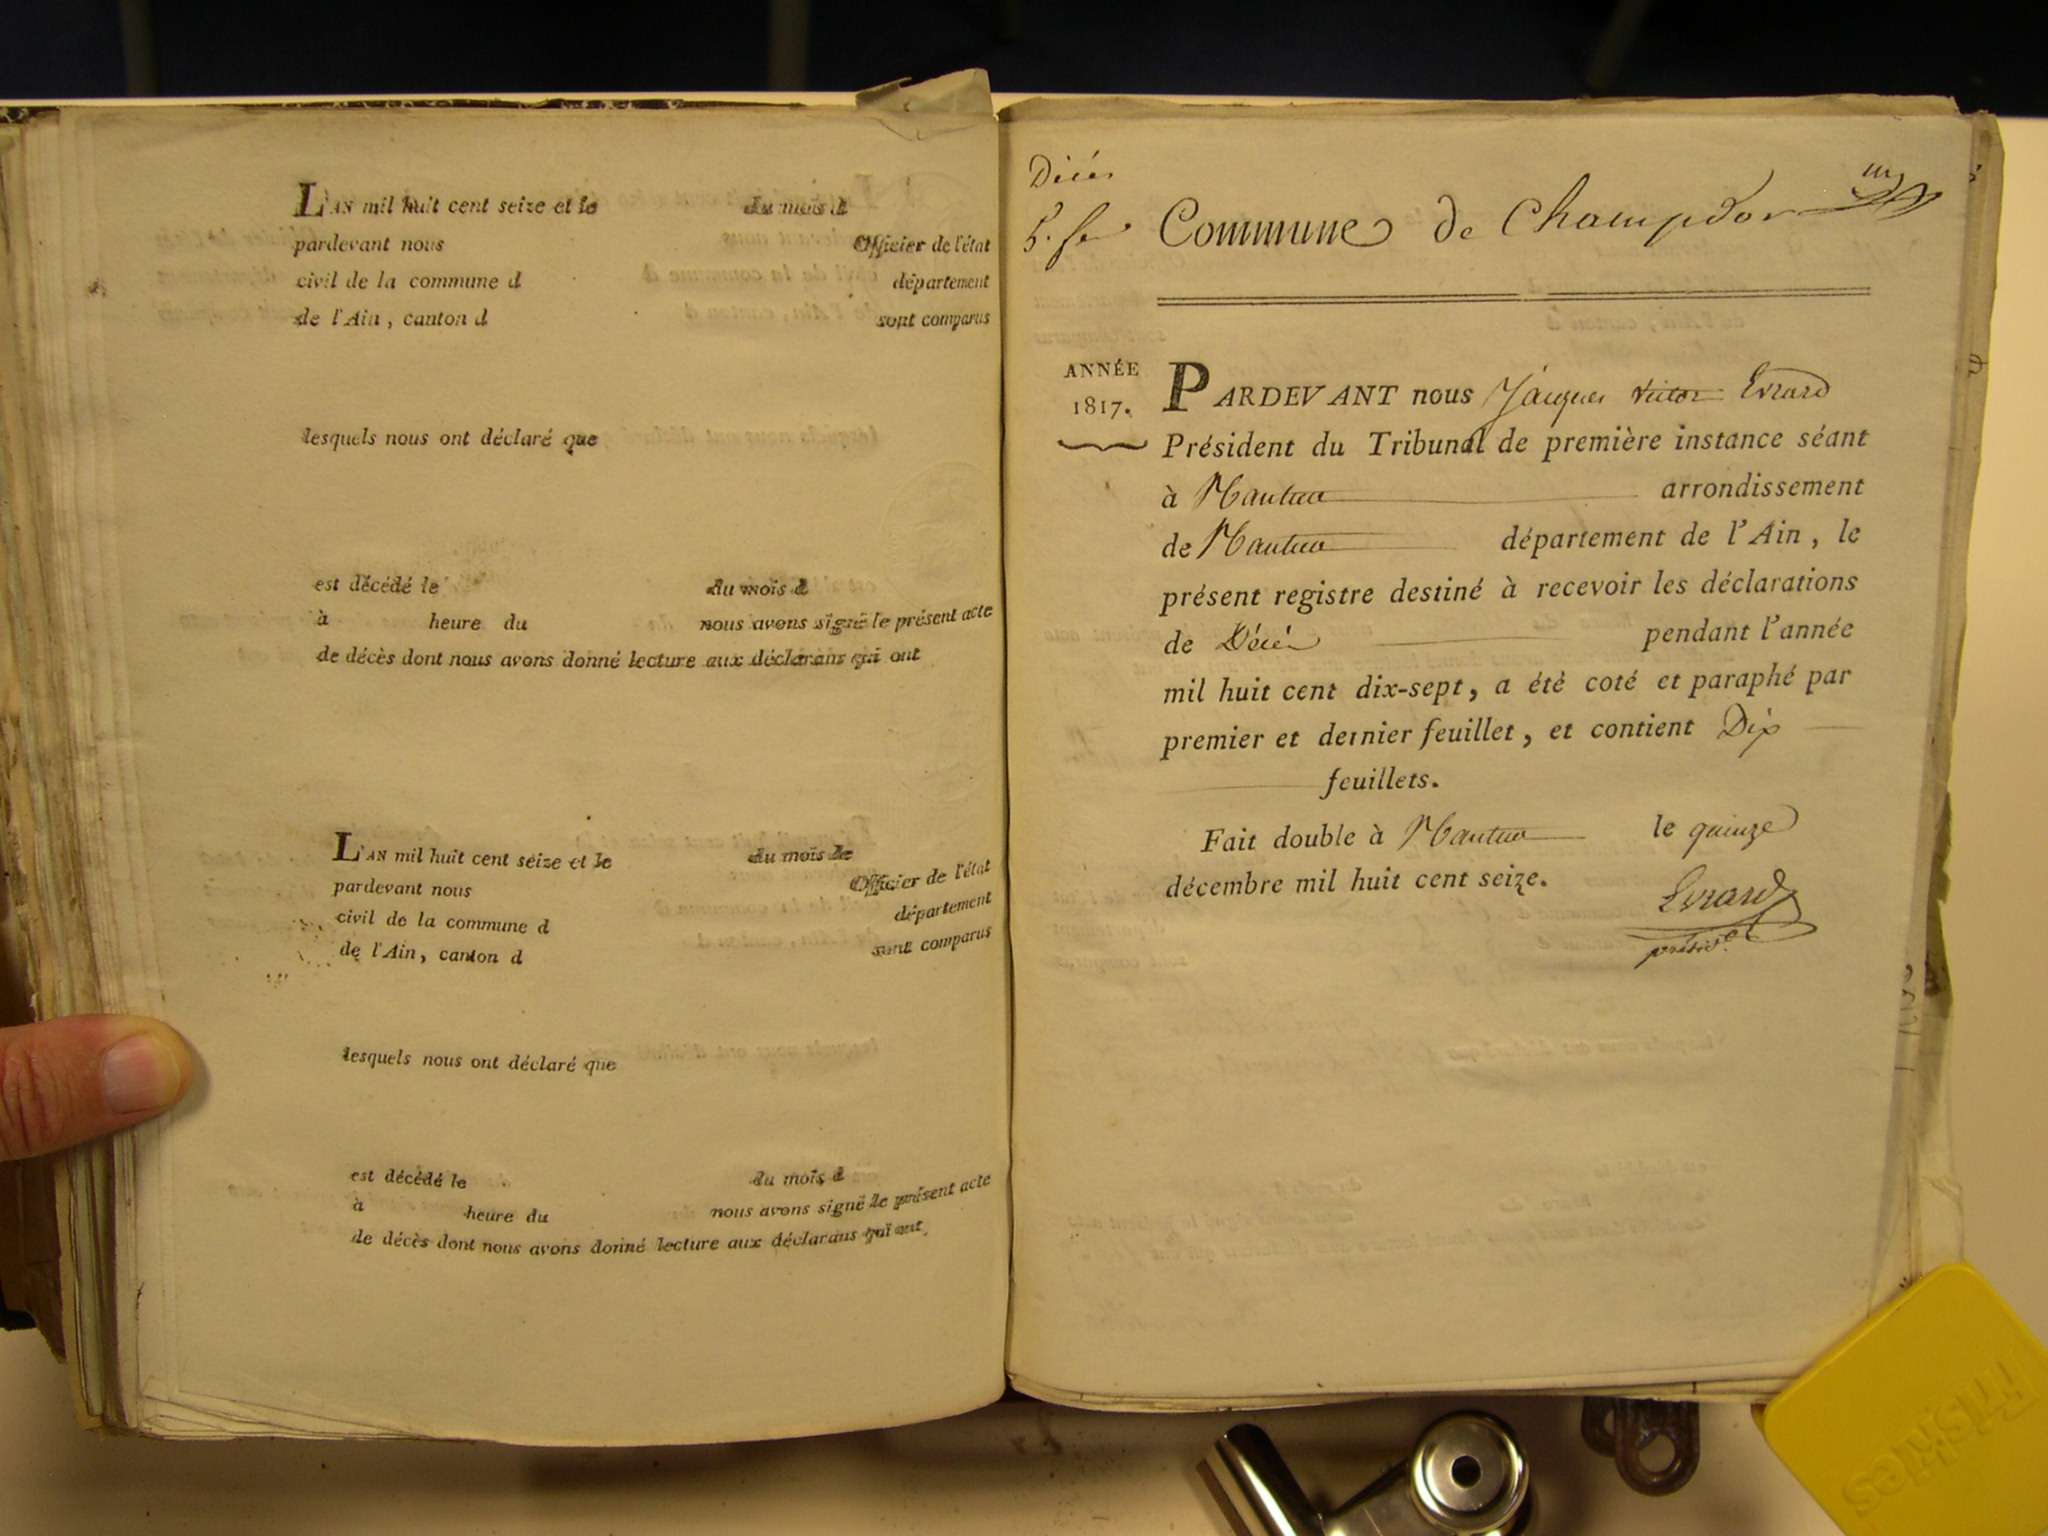 L'AN mil huit cent seize et le du mois d
pardevant nous Officier de l'état
civil de la commune d département
de l'Ain, canton d sont comparus
lesquels nous ont déclaré que
est décédé le du mois d
à heure du nous avons signé le présent acte
de décès dont nous avons donné lecture aux déclarans qui ont
L'AN mil huit cent seize et le du mois de
pardevant nous Officier de l'état
civil de la commune d département
de l'Ain, canton d sont comparus
lesquels nous ont déclaré que
est décédé le du mois d
à heure du nous avons signé le présent acte
de décès dont nous avons donné lecture aux déclarans qui ont
Décès
Commune de Champdor
ANNÉE
1817.
PARDEVANT nous Jacques Victor Evrard
Président du Tribunal de première instance séant
à Nantua arrondissement
de Nantua département de l'Ain, le
présent registre destiné à recevoir les déclarations
de Décès pendant l'année
mil huit cent dix-sept, a été coté et paraphé par
premier et dernier feuillet, et contient Dix
feuillets.
Fait double à Nantua le quinze
décembre mil huit cent seize.
Evrard
Triskles